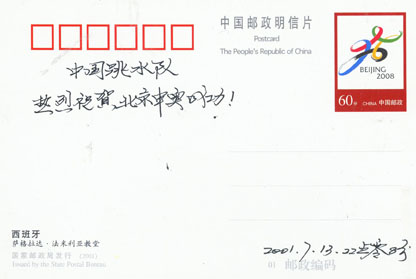 中国邮政明信片
Postcard
The People's Republic of China
BEIJING
2008
60分 CHINA 中国邮政
中国跳水队
热烈祝贺北京申奥成功!
西班牙
萨格拉达·法米利亚教堂
国家邮政局发行 (2001)
Issued by the State Postal Bureau
2001.7.13.22点零8分
01 邮政编码